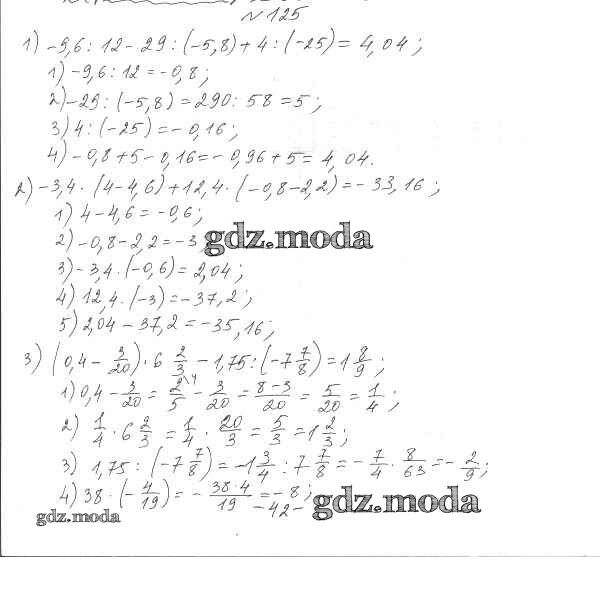 №125
1) -9,6 : 12 - 29 : (-5,8) + 4 : (-25) = 4,04;
1) -9,6 : 12 = -0,8;
2) -29 : (-5,8) = 290 : 58 = 5;
3) 4 : (-25) = -0,16;
4) -0,8 + 5 - 0,16 = -0,96 + 5 = 4,04.
2) -3,4 · (4 - 4,6) + 12,4 · (-0,8 - 2,2) = -33,16;
1) 4 - 4,6 = -0,6;
2) -0,8 - 2,2 = -3
gdz.moda
3) -3,4 · (-0,6) = 2,04;
4) 12,4 · (-3) = -37,2;
5) 2,04 - 37,2 = -35,16;
3) (0,4 - 3/20) · 6 2/3 - 1,75 : (-7 7/8) = 1 8/9;
1) 0,4 - 3/20 = 2\4/5 - 3/20 = 8-3/20 = 5/20 = 1/4;
2) 1/4 · 6 2/3 = 1/4 · 20/3 = 5/3 = 1 2/3;
3) 1,75 : (-7 7/8) = -1 3/4 : 7 7/8 = -7/4 · 8/63 = -2/9;
4) 38 · (-4/19) = -38·4/19 = -8;
gdz.moda
-42-
gdz.moda